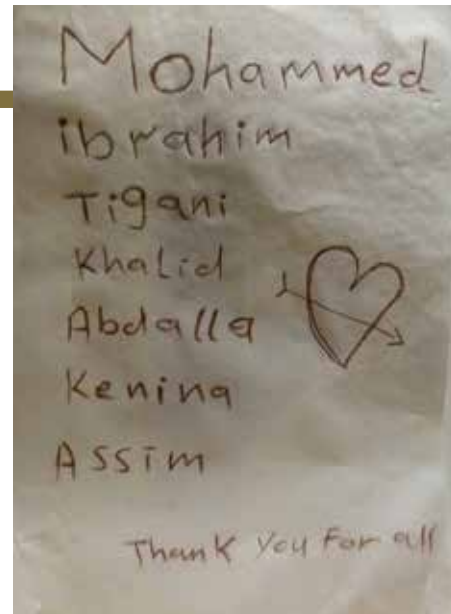 Mohammed
ibrahim
Tigani
Khalid
Abdalla
Kenina
Assim
Thank you for all